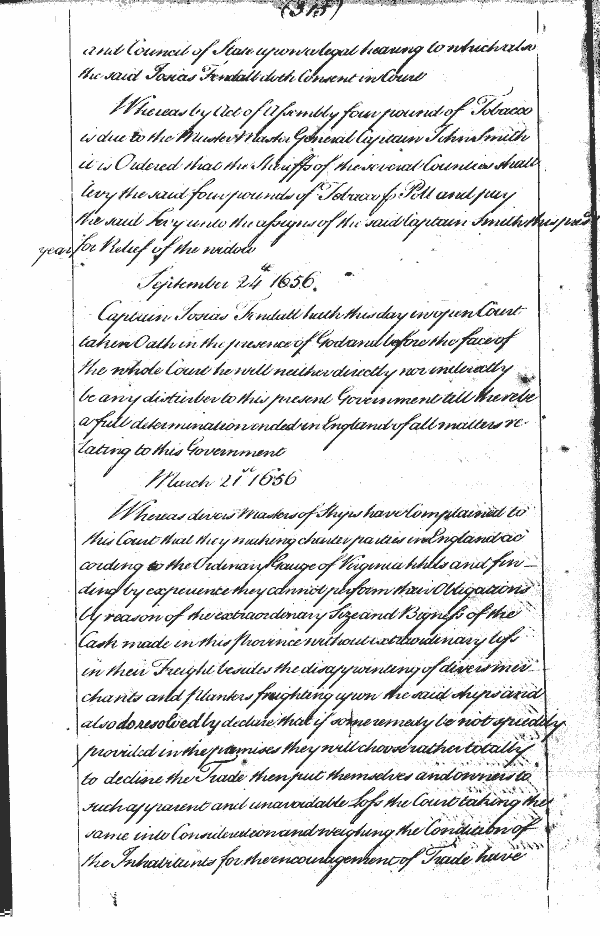 (315)
and Council of State upon a legal hearing to which also
the said Josias Fendall doth Consent in Court
Whereas by Act of Assembly four pound of Tobacco
is due to the Muster Master General Captain John Smith
it is Ordered that the Sheriffs of the several Counties shall
levy the said four pounds of Tobacco p Poll and pay
the said levy unto the assigns of the said Captain Smith this
year for Relief of the widow
September 24th 1656.
Captain Josias Fendall hath this day in open Court
taken Oath in the presence of God and before the face of
the whole Court he will neither directly nor indirectly
be any disturber to this present Government till there be
a full determination ended in England of all matters re-
lating to this Government
March 21st 1656
Whereas divers Masters of Ships have Complained to
this Court that they making charter parties in England ac
cording to the Ordinary Gauge of Virginia hhds and fin_
ding by experience they cannot perform their Obligations
by reason of the extraordinary Size and Bigness of the
Cask made in this Province without extraordinary loss
in their Freight besides the disappointing of divers mer
chants and Planters freighting upon the said Ships and
also do resolvedly declare that if some remedy be not speedily
provided in the premises they will choose rather totally
to decline the Trade then put themselves and owners to
such apparent and unavoidable Loss the Court taking the
same into Consideration and weighing the Condition of
the Inhabitants for the encouragement of Trade have